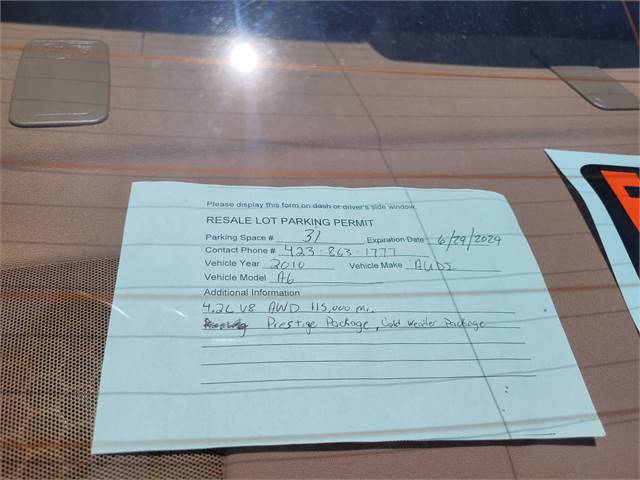 Please display this form on dash or driver's side window.
RESALE LOT PARKING PERMIT
Parking Space # 31 Expiration Date 6/29/2024
Contact Phone # 423-863-1777
Vehicle Year 2010 Vehicle Make AUDI
Vehicle Model A6
Additional Information
4.2L V8 AWD 115,000 mi.
Prestige Package, Cold Weather Package